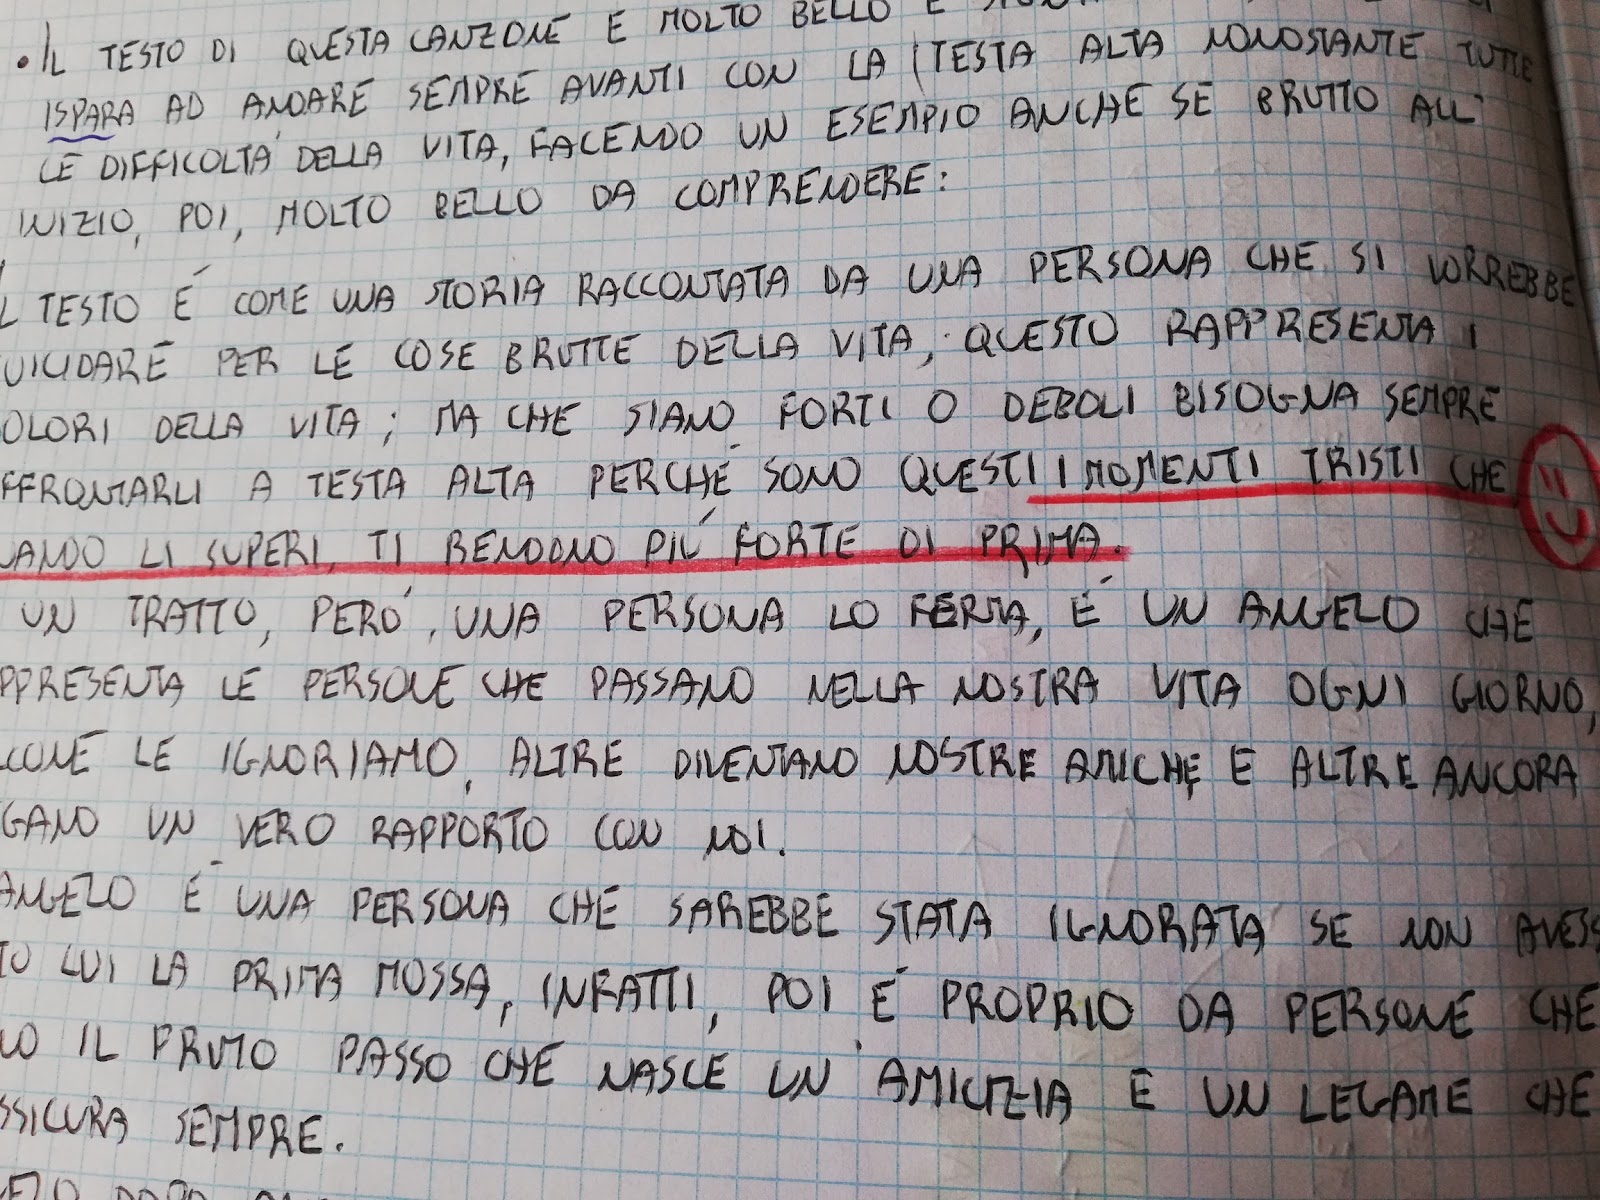 • IL TESTO DI QUESTA CANZONE E MOLTO BELLO E
ISPARA AD ANDARE SEMPRE AVANTI CON LA TESTA ALTA NONOSTANTE TUTTE
LE DIFFICOLTÀ DELLA VITA, FACENDO UN ESEMPIO ANCHE SE BRUTTO ALL'
INIZIO, POI, MOLTO BELLO DA COMPRENDERE:
L TESTO É COME UNA STORIA RACCONTATA DA UNA PERSONA CHE SI VORREBBE
UICIDARE PER LE COSE BRUTTE DELLA VITA, QUESTO RAPPRESENTA I
OLORI DELLA VITA; MA CHE SIANO FORTI O DEBOLI BISOGNA SEMPRE
FFRONTARLI A TESTA ALTA PERCHÉ SONO QUESTI I MOMENTI TRISTI CHE
UANDO LI SUPERI, TI RENDONO PIÚ FORTE DI PRIMA.
UN TRATTO, PERÓ, UNA PERSONA LO FERMA, É UN ANGELO CHE
PPRESENTA LE PERSONE CHE PASSANO NELLA NOSTRA VITA OGNI GIORNO,
LCUNE LE IGNORIAMO, ALTRE DIVENTANO NOSTRE AMICHE E ALTRE ANCORA
GANO UN VERO RAPPORTO CON NOI.
ANGELO É UNA PERSONA CHE SAREBBE STATA IGNORATA SE NON AVESS
TO LUI LA PRIMA MOSSA, INFATTI, POI É PROPRIO DA PERSONE CHE
NO IL PRIMO PASSO CHE NASCE UN'AMICIZIA E UN LEGAME CHE
SSICURA SEMPRE.